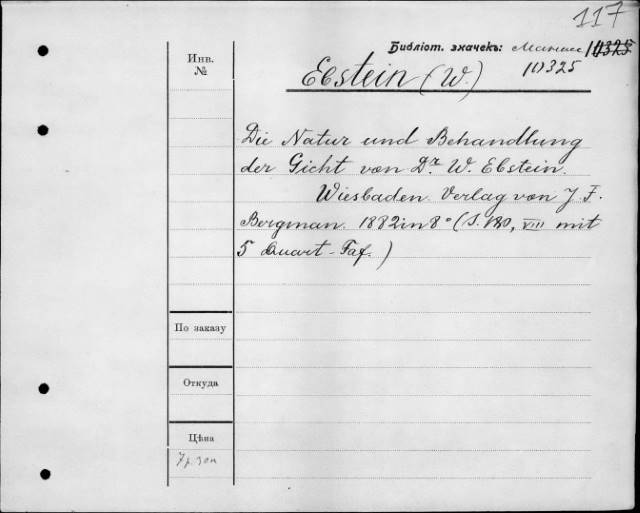 117
Библіот. значекъ:
10325
Инв.
№
Ebstein (W.)
Die Natur und Behandlung
der Gicht von Dr. W. Ebstein.
Wiesbaden. Verlag von J. F.
Bergman. 1882 in 8° (S. VIII mit
5 Quart-Taf.)
По заказу
Откуда
Цѣна